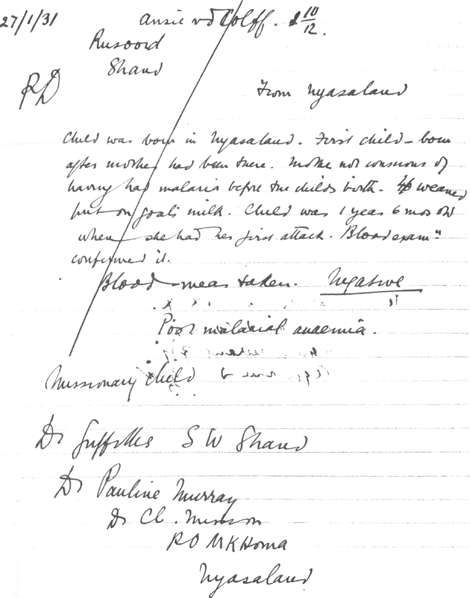 27/1/31 Ansie vd Colff. 2 10/12.
Rusoord
Strand
RD
From Nyasaland
Child was born in Nyasaland. First child - born
after mother had been there. Mother not conscious of
having had malaria before the childs birth. weaned
put on goats milk. Child was 1 year 6 mos old
when she had her first attack. Blood exam"
confirmed it.
Blood smear taken. Negative
Post malarial anaemia.
Missionary child
Dr S W Strand
Dr Pauline Murray
Dr Ch. Mission
P O MKHoma
Nyasaland